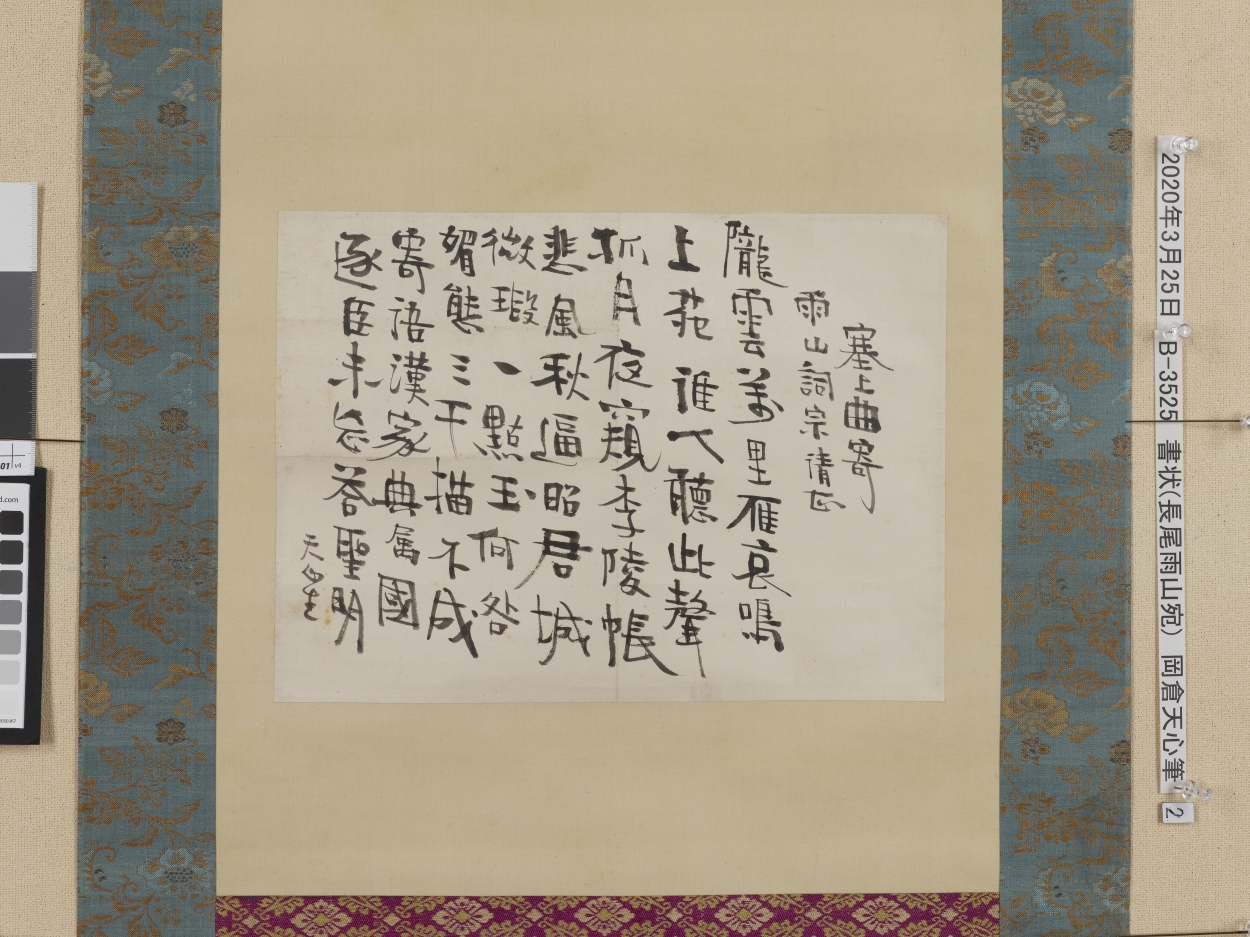 塞上曲寄
雨山詞宗請正
隴雲萬里雁哀鳴
上苑誰人聽此聲
孤月夜窺李陵帳
悲風秋逼昭君城
微瑕一點玉何咎
媚態三千描不成
寄語漢家典属國
逐臣未必答聖明
天心生
2020年3月25日 B-3525 書状(長尾雨山宛) 岡倉天心筆
2